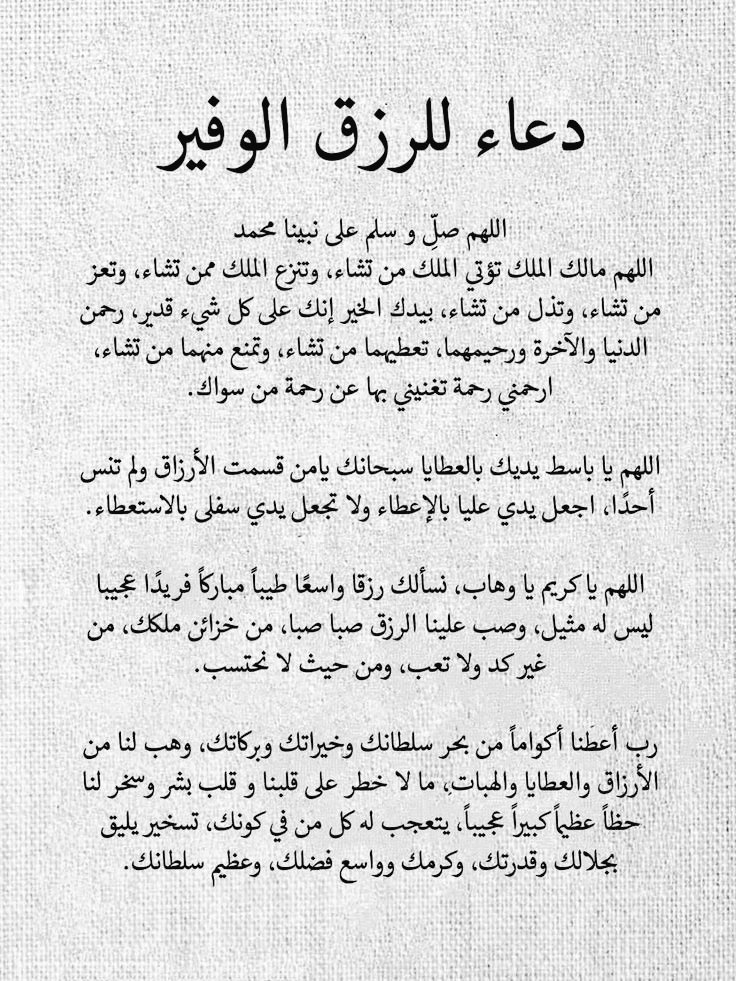 دعاء للرزق الوفير
اللهم صلِّ و سلم على نبينا محمد
اللهم مالك الملك تؤتي الملك من تشاء، وتنزع الملك ممن تشاء، وتعز
من تشاء، وتذل من تشاء، بيدك الخير إنك على كل شيء قدير، رحمن
الدنيا والآخرة ورحيمهما، تعطيهما من تشاء، وتمنع منهما من تشاء،
ارحمني رحمة تغنيني بها عن رحمة من سواك.
اللهم يا باسط يديك بالعطايا سبحانك يامن قسمت الأرزاق ولم تنس
أحدًا، اجعل يدي عليا بالإعطاء ولا تجعل يدي سفلى بالاستعطاء.
اللهم يا كريم يا وهاب، نسألك رزقا واسعًا طيباً مباركاً فريدًا عجيبا
ليس له مثيل، وصب علينا الرزق صبا صبا، من خزائن ملكك، من
غير كد ولا تعب، ومن حيث لا نحتسب.
رب أعطنا أكواماً من بحر سلطانك وخيراتك وبركاتك، وهب لنا من
الأرزاق والعطايا والهباتِ، ما لا خطر على قلبنا و قلب بشر وسخر لنا
حظاً عظيماً كبيراً عجيباً، يتعجب له كل من في كونك، تسخير يليق
بجلالك وقدرتك، وكرمك وواسع فضلك، وعظيم سلطانك.